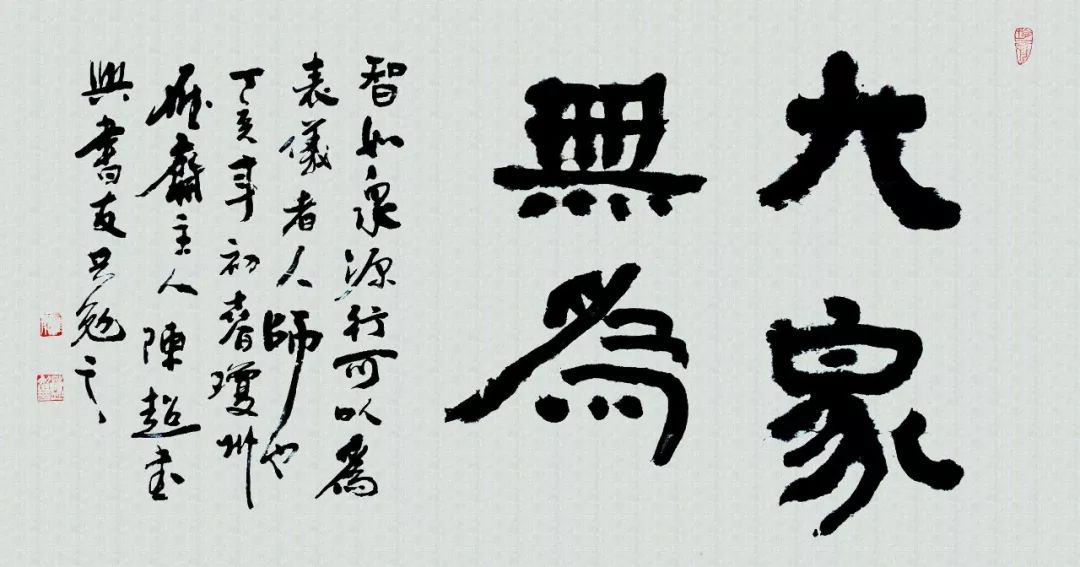 大象
無為
智如泉源行可以爲
表儀者人師也
丁亥年初春瓊州
齋主人陳超書
與書友共勉之